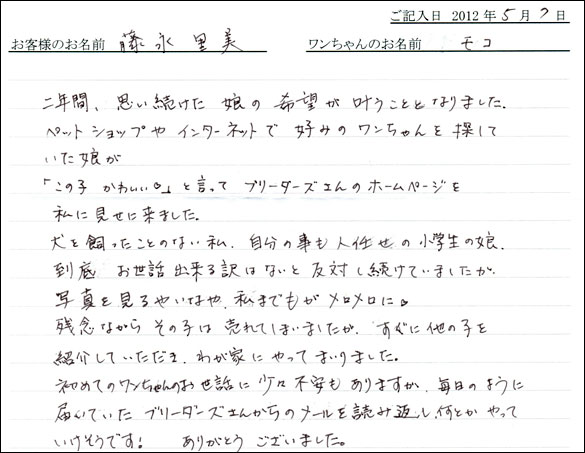 ご記入日 2012 年 5 月 7 日
お客様のお名前 藤永里美 ワンちゃんのお名前 モコ
二年間、思い続けた娘の希望が叶うこととなりました。
ペットショップやインターネットで好みのワンちゃんを探して
いた娘が
「この子かわいい♡」と言ってブリーダーズさんのホームページを
私に見せに来ました。
犬を飼ったことのない私、自分の事も人任せの小学生の娘、
到底お世話出来る訳はないと反対し続けていましたが
写真を見るやいなや、私までもがメロメロに♡
残念ながらその子は売れてしまいましたが、すぐに他の子を
紹介していただき、わが家にやってまいりました。
初めてのワンちゃんのお世話に少々不安もありますが、毎日のように
届いていたブリーダーズさんからのメールを読み返し、何とかやって
いけそうです! ありがとうございました。